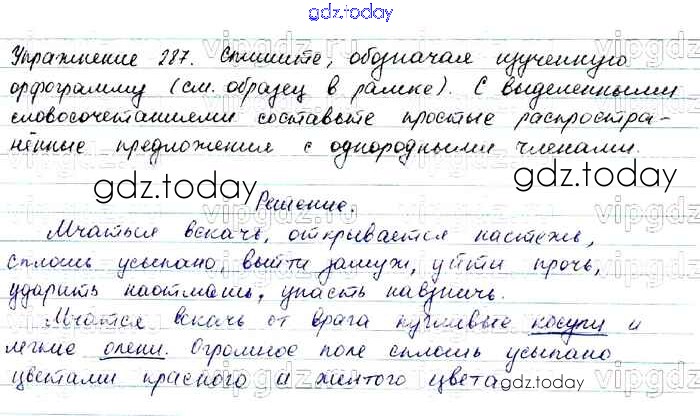 gdz.today
Упражнение 287. Спишите, обозначая изученную
орфограмму (см. образец в рамке). С выделенными
словосочетаниями составьте простые распростра-
нённые предложения с однородными членами.
gdz.today
gdz.today
Решение.
Мчаться вскачь, открывается настежь,
сплошь усыпано, выйти замуж, уйти прочь,
ударить наотмашь, упасть навзничь.
Мчатся вскачь от врага пугливые косули и
легкие олени. Огромное поле сплошь усыпано
цветами красного и желтого цвета
gdz.today